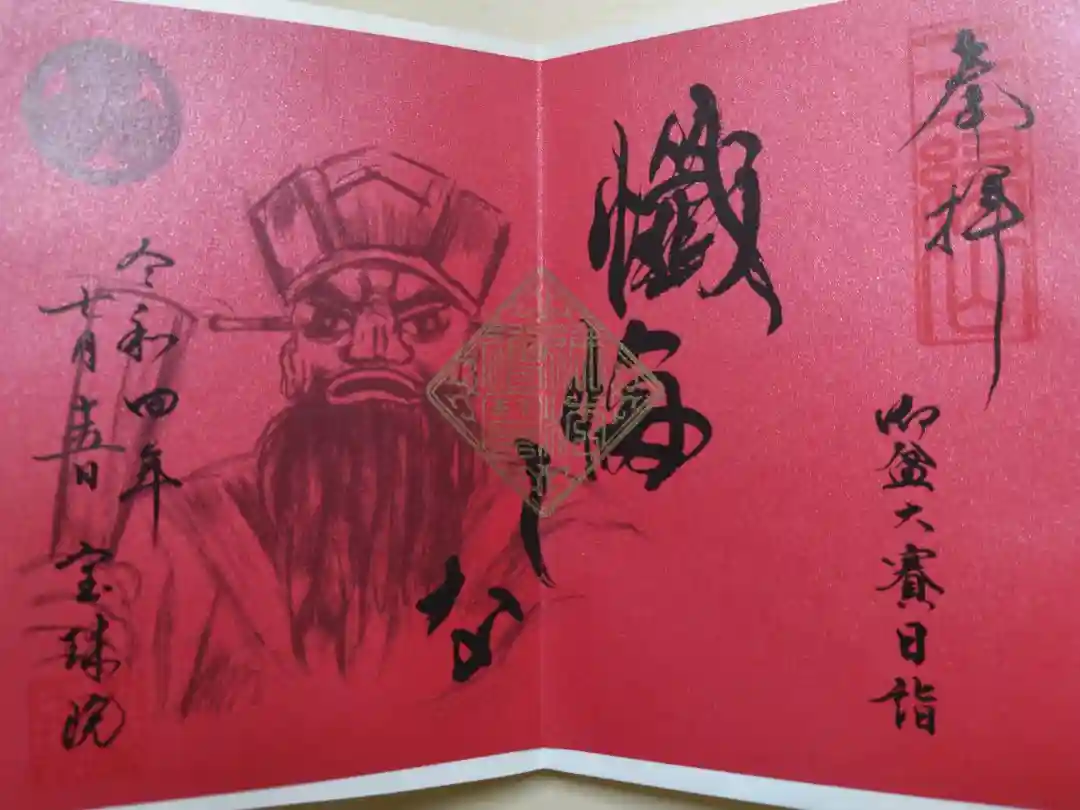 奉拝
御盆大賽日詣
懺悔しな
令和四年
七月十五日
宝珠院